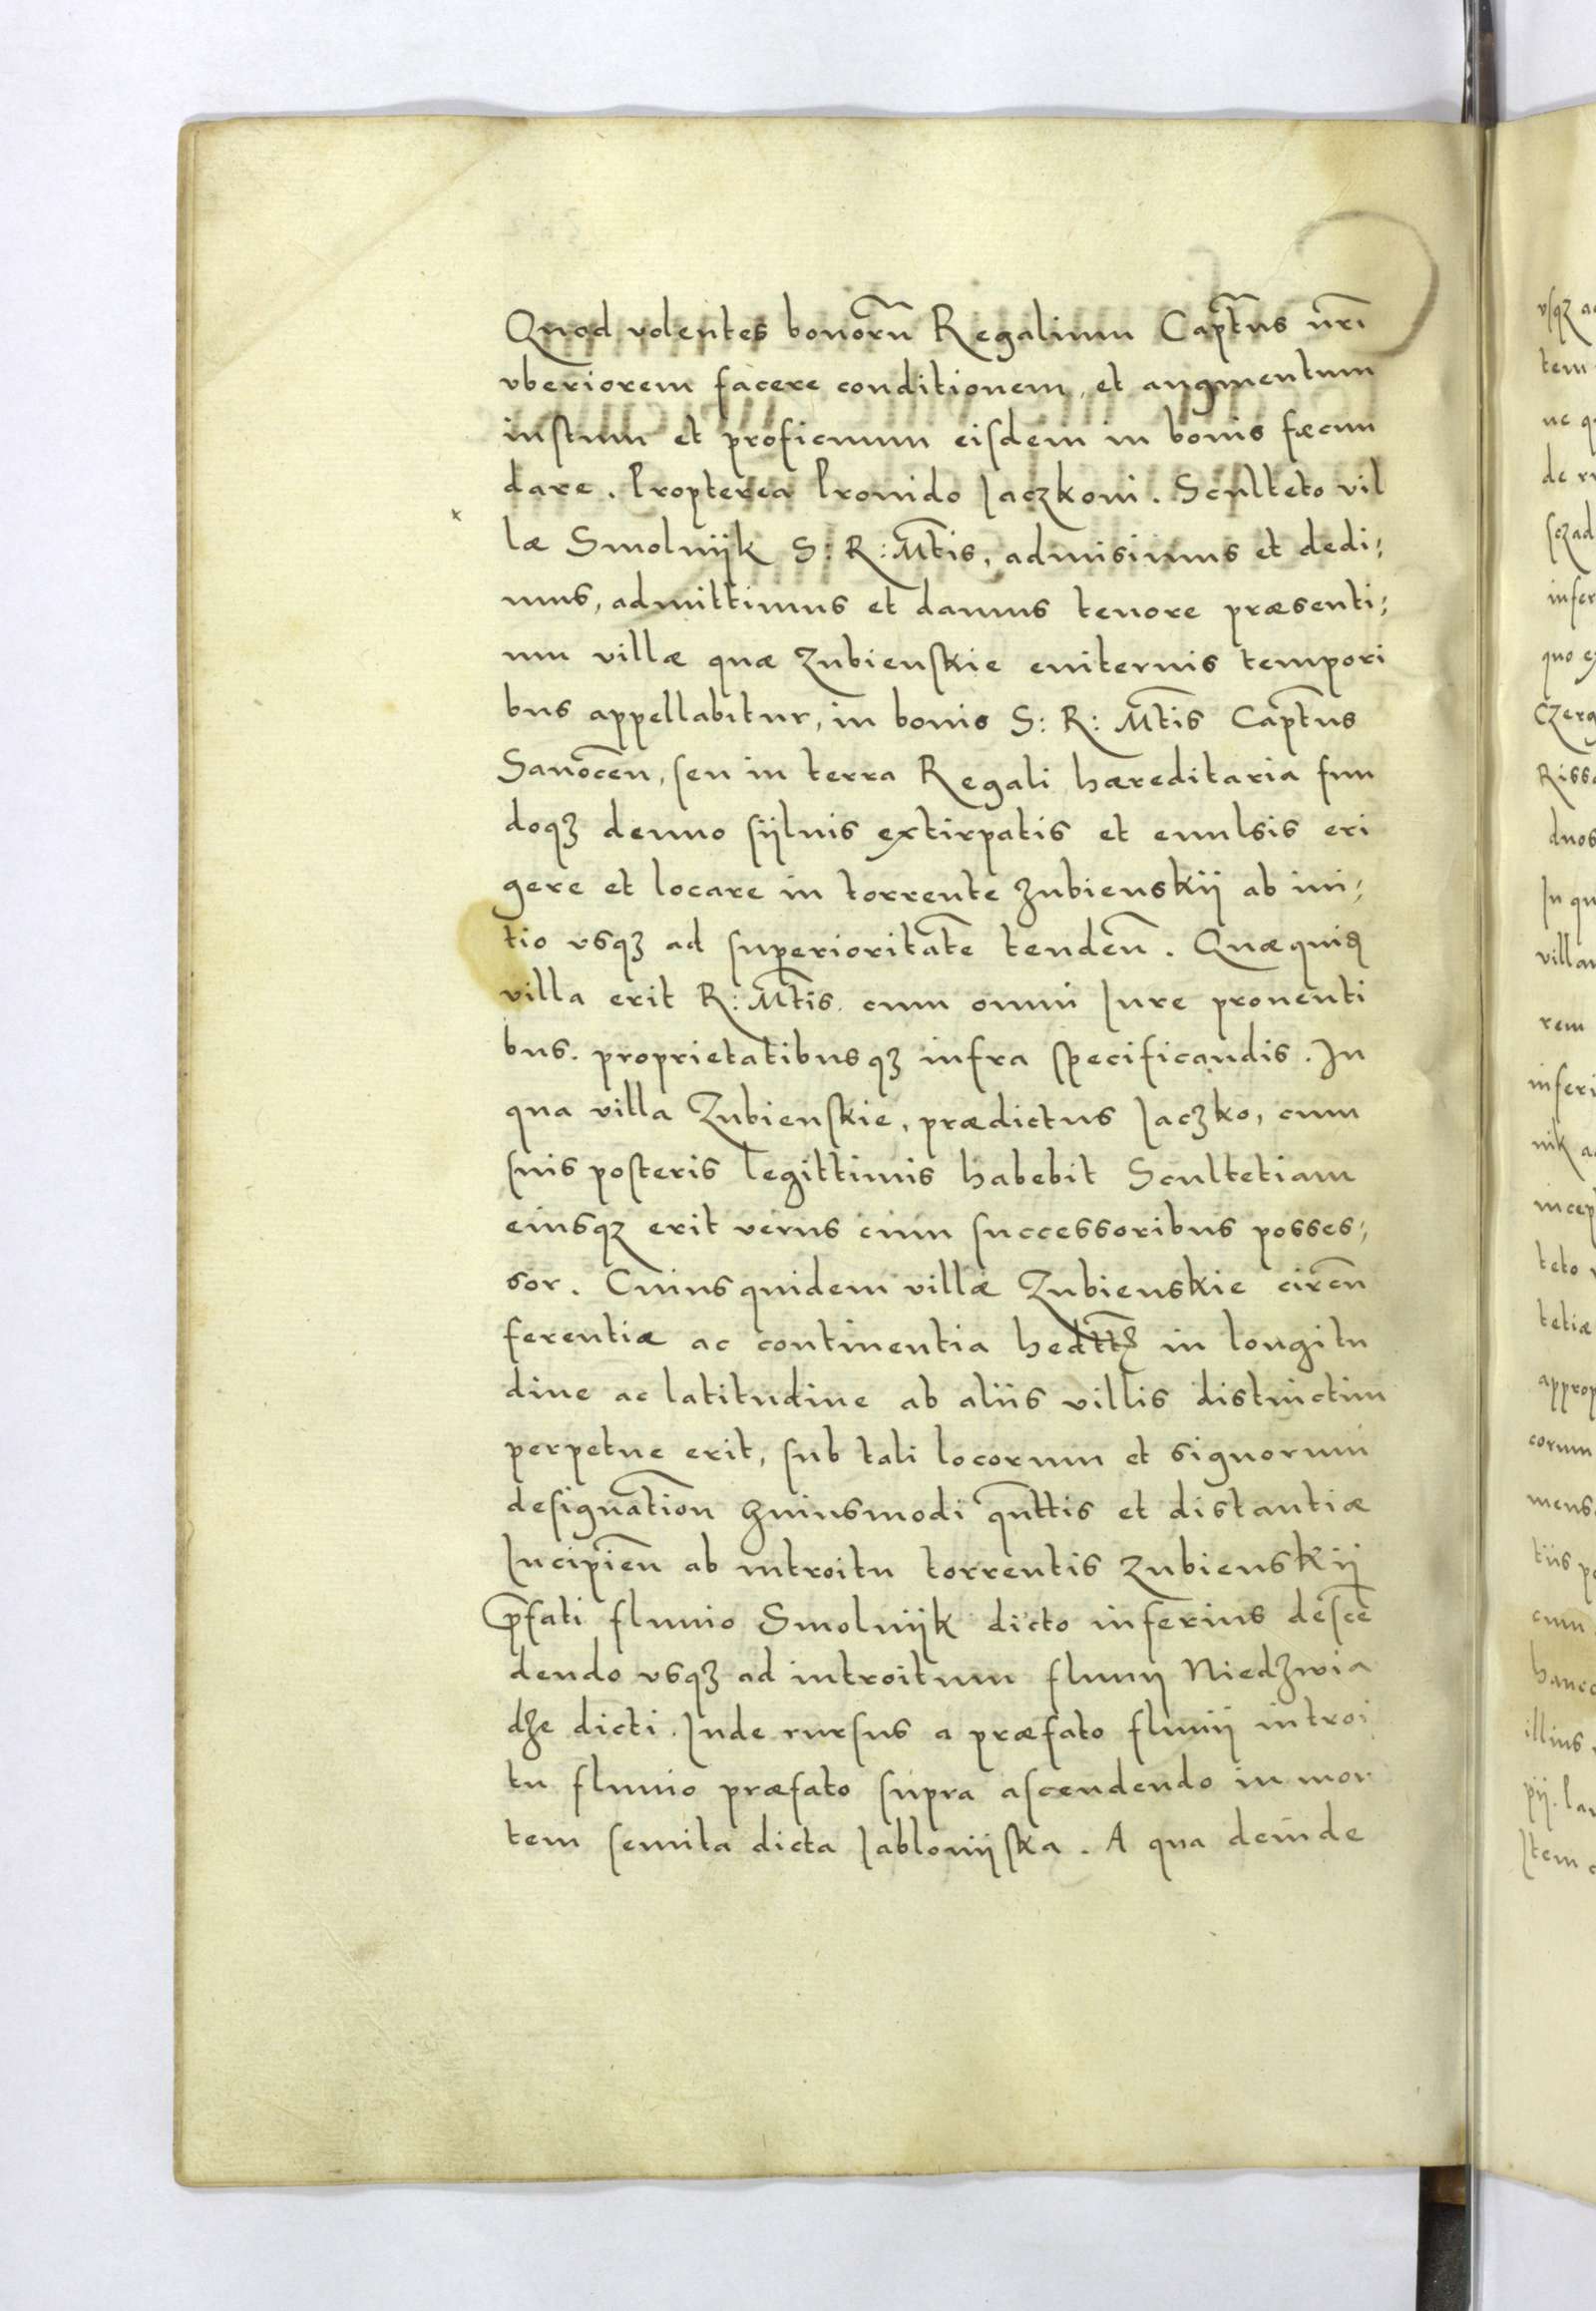 Quod volentes bonorū Regalium Capt̄us nr̄i
vberiorem facere conditionem, et augmentum
iustum et proficuum eisdem in bonis fæcun
dare. Propterea Prouido Jaczkoni. Sculteto vil
læ Smolnijk S: R: Mt̄is, admisimus et dedi:
mus, admittimus et damus tenore præsenti:
um villæ quæ Zubienskie euiternis tempori
bus appellabitur, in bonis S: R: Mt̄is Capt̄us
Sanocen̄, seu in terra Regali hæreditaria fun
doqꝫ denuo sijluis extirpatis et euulsis eri
gere et locare in torrente Zubienskij ab ini:
tio vsqꝫ ad superioritat̄e tenden̄. Quæquiꝺ
villa erit R: Mt̄is. cum omni Jure prouenti
bus. proprietatibusqꝫ infra specificandis. In
qua villa Zubienskie, prædictus Jaczko, cum
suis posteris legittimis habebit Scultetiam
eiusqꝫ erit verus cum successoribus posses:
sor. Cuius quidem villæ Zubienskie circū
ferentiæ ac continentia in longitu
dine ac latitudine ab aliis villis distinctim
perpetue erit, sub tali locorum et signorum
designation̄ huiusmodi qn̄ttis et distantiæ
Incipien̄ ab introitu torrentis Zubienskij
p̄fati fluuio Smolnijk dicto inferius descē
dendo vsqꝫ ad introitum fluuij Niedzwia
dze dicti. Inde rursus a præfato fluuij introi
tu fluuio præfato supra ascendendo in mon
tem semita dicta Jablonijska. A qua deinde